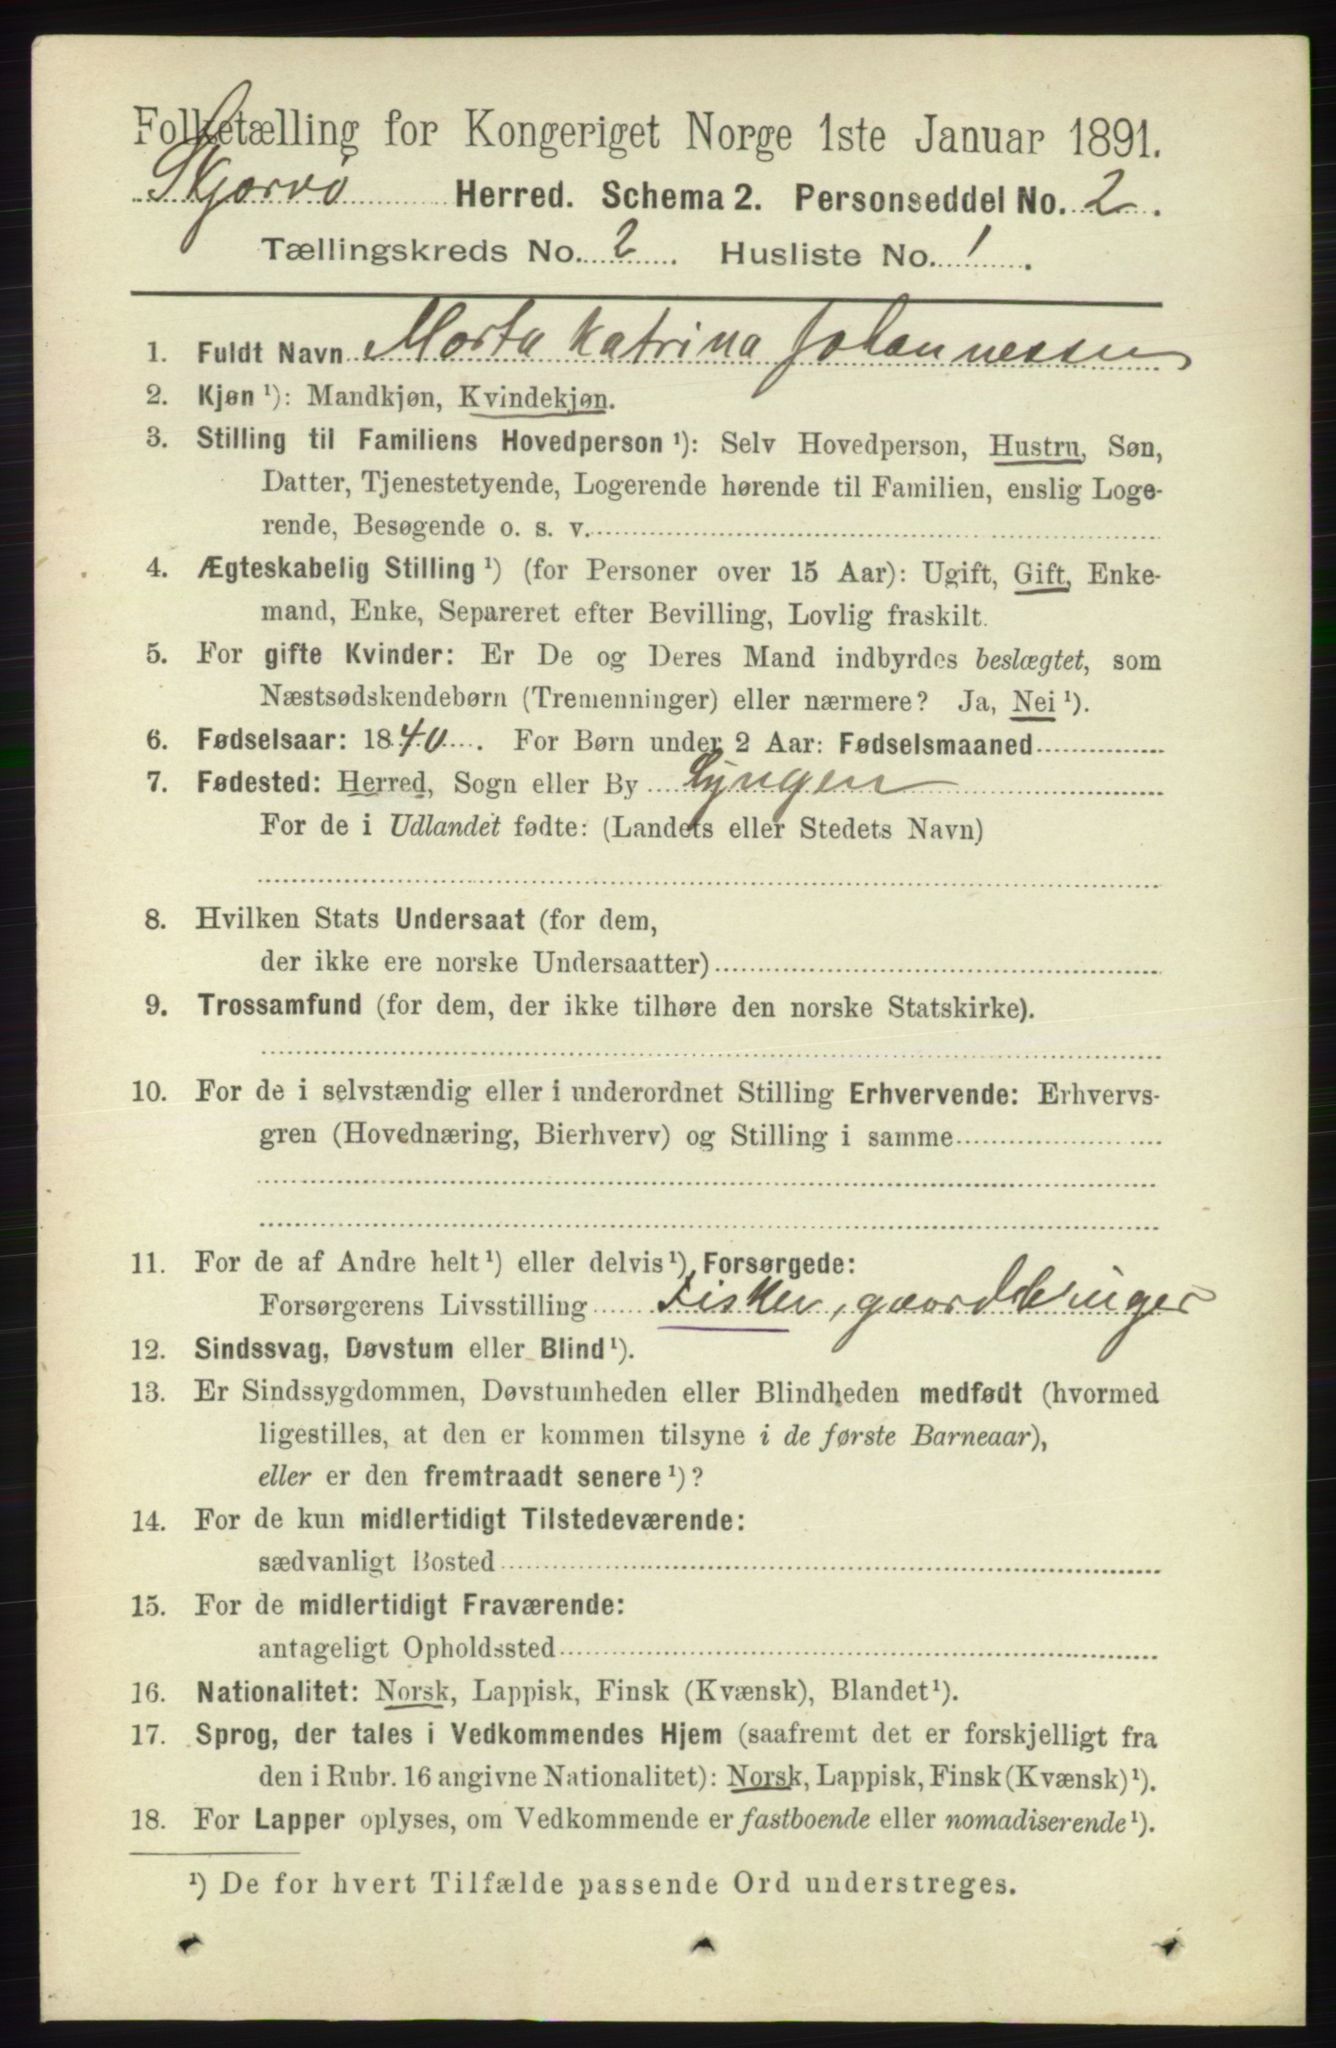 Folketælling for Kongeriget Norge 1ste Januar 1891.
Skjervø Herred. Schema 2. Personseddel No. 2.
Tællingskreds No. 2. Husliste No. 1.
1. Fuldt Navn Marta Katrina Johannessen
2. Kjøn ¹): Mandkjøn, Kvindekjøn.
3. Stilling til Familiens Hovedperson ¹): Selv Hovedperson, Hustru, Søn,
Datter, Tjenestetyende, Logerende hørende til Familien, enslig Loge-
rende, Besøgende o. s. v.
4. Ægteskabelig Stilling ¹) (for Personer over 15 Aar): Ugift, Gift, Enke-
mand, Enke, Separeret efter Bevilling, Lovlig fraskilt.
5. For gifte Kvinder: Er De og Deres Mand indbyrdes beslægtet, som
Næstsødskendebørn (Tremenninger) eller nærmere? Ja, Nei ¹).
6. Fødselsaar: 1840. For Børn under 2 Aar: Fødselsmaaned
7. Fødested: Herred, Sogn eller By Lyngen
For de i Udlandet fødte: (Landets eller Stedets Navn)
8. Hvilken Stats Undersaat (for dem,
der ikke ere norske Undersaatter)
9. Trossamfund (for dem, der ikke tilhøre den norske Statskirke).
10. For de i selvstændig eller i underordnet Stilling Erhvervende: Erhvervs-
gren (Hovednæring, Bierhverv) og Stilling i samme
11. For de af Andre helt ¹) eller delvis ¹) Forsørgede:
Forsørgerens Livsstilling Fisker, gaardbruger
12. Sindssvag, Døvstum eller Blind ¹).
13. Er Sindssygdommen, Døvstumheden eller Blindheden medfødt (hvormed
ligestilles, at den er kommen tilsyne i de første Barneaar),
eller er den fremtraadt senere ¹)?
14. For de kun midlertidigt Tilstedeværende:
sædvanligt Bosted
15. For de midlertidigt Fraværende:
antageligt Opholdssted
16. Nationalitet: Norsk, Lappisk, Finsk (Kvænsk), Blandet ¹).
17. Sprog, der tales i Vedkommendes Hjem (saafremt det er forskjelligt fra
den i Rubr. 16 angivne Nationalitet): Norsk, Lappisk, Finsk (Kvænsk) ¹).
18. For Lapper oplyses, om Vedkommende er fastboende eller nomadiserende ¹).
¹) De for hvert Tilfælde passende Ord understreges.